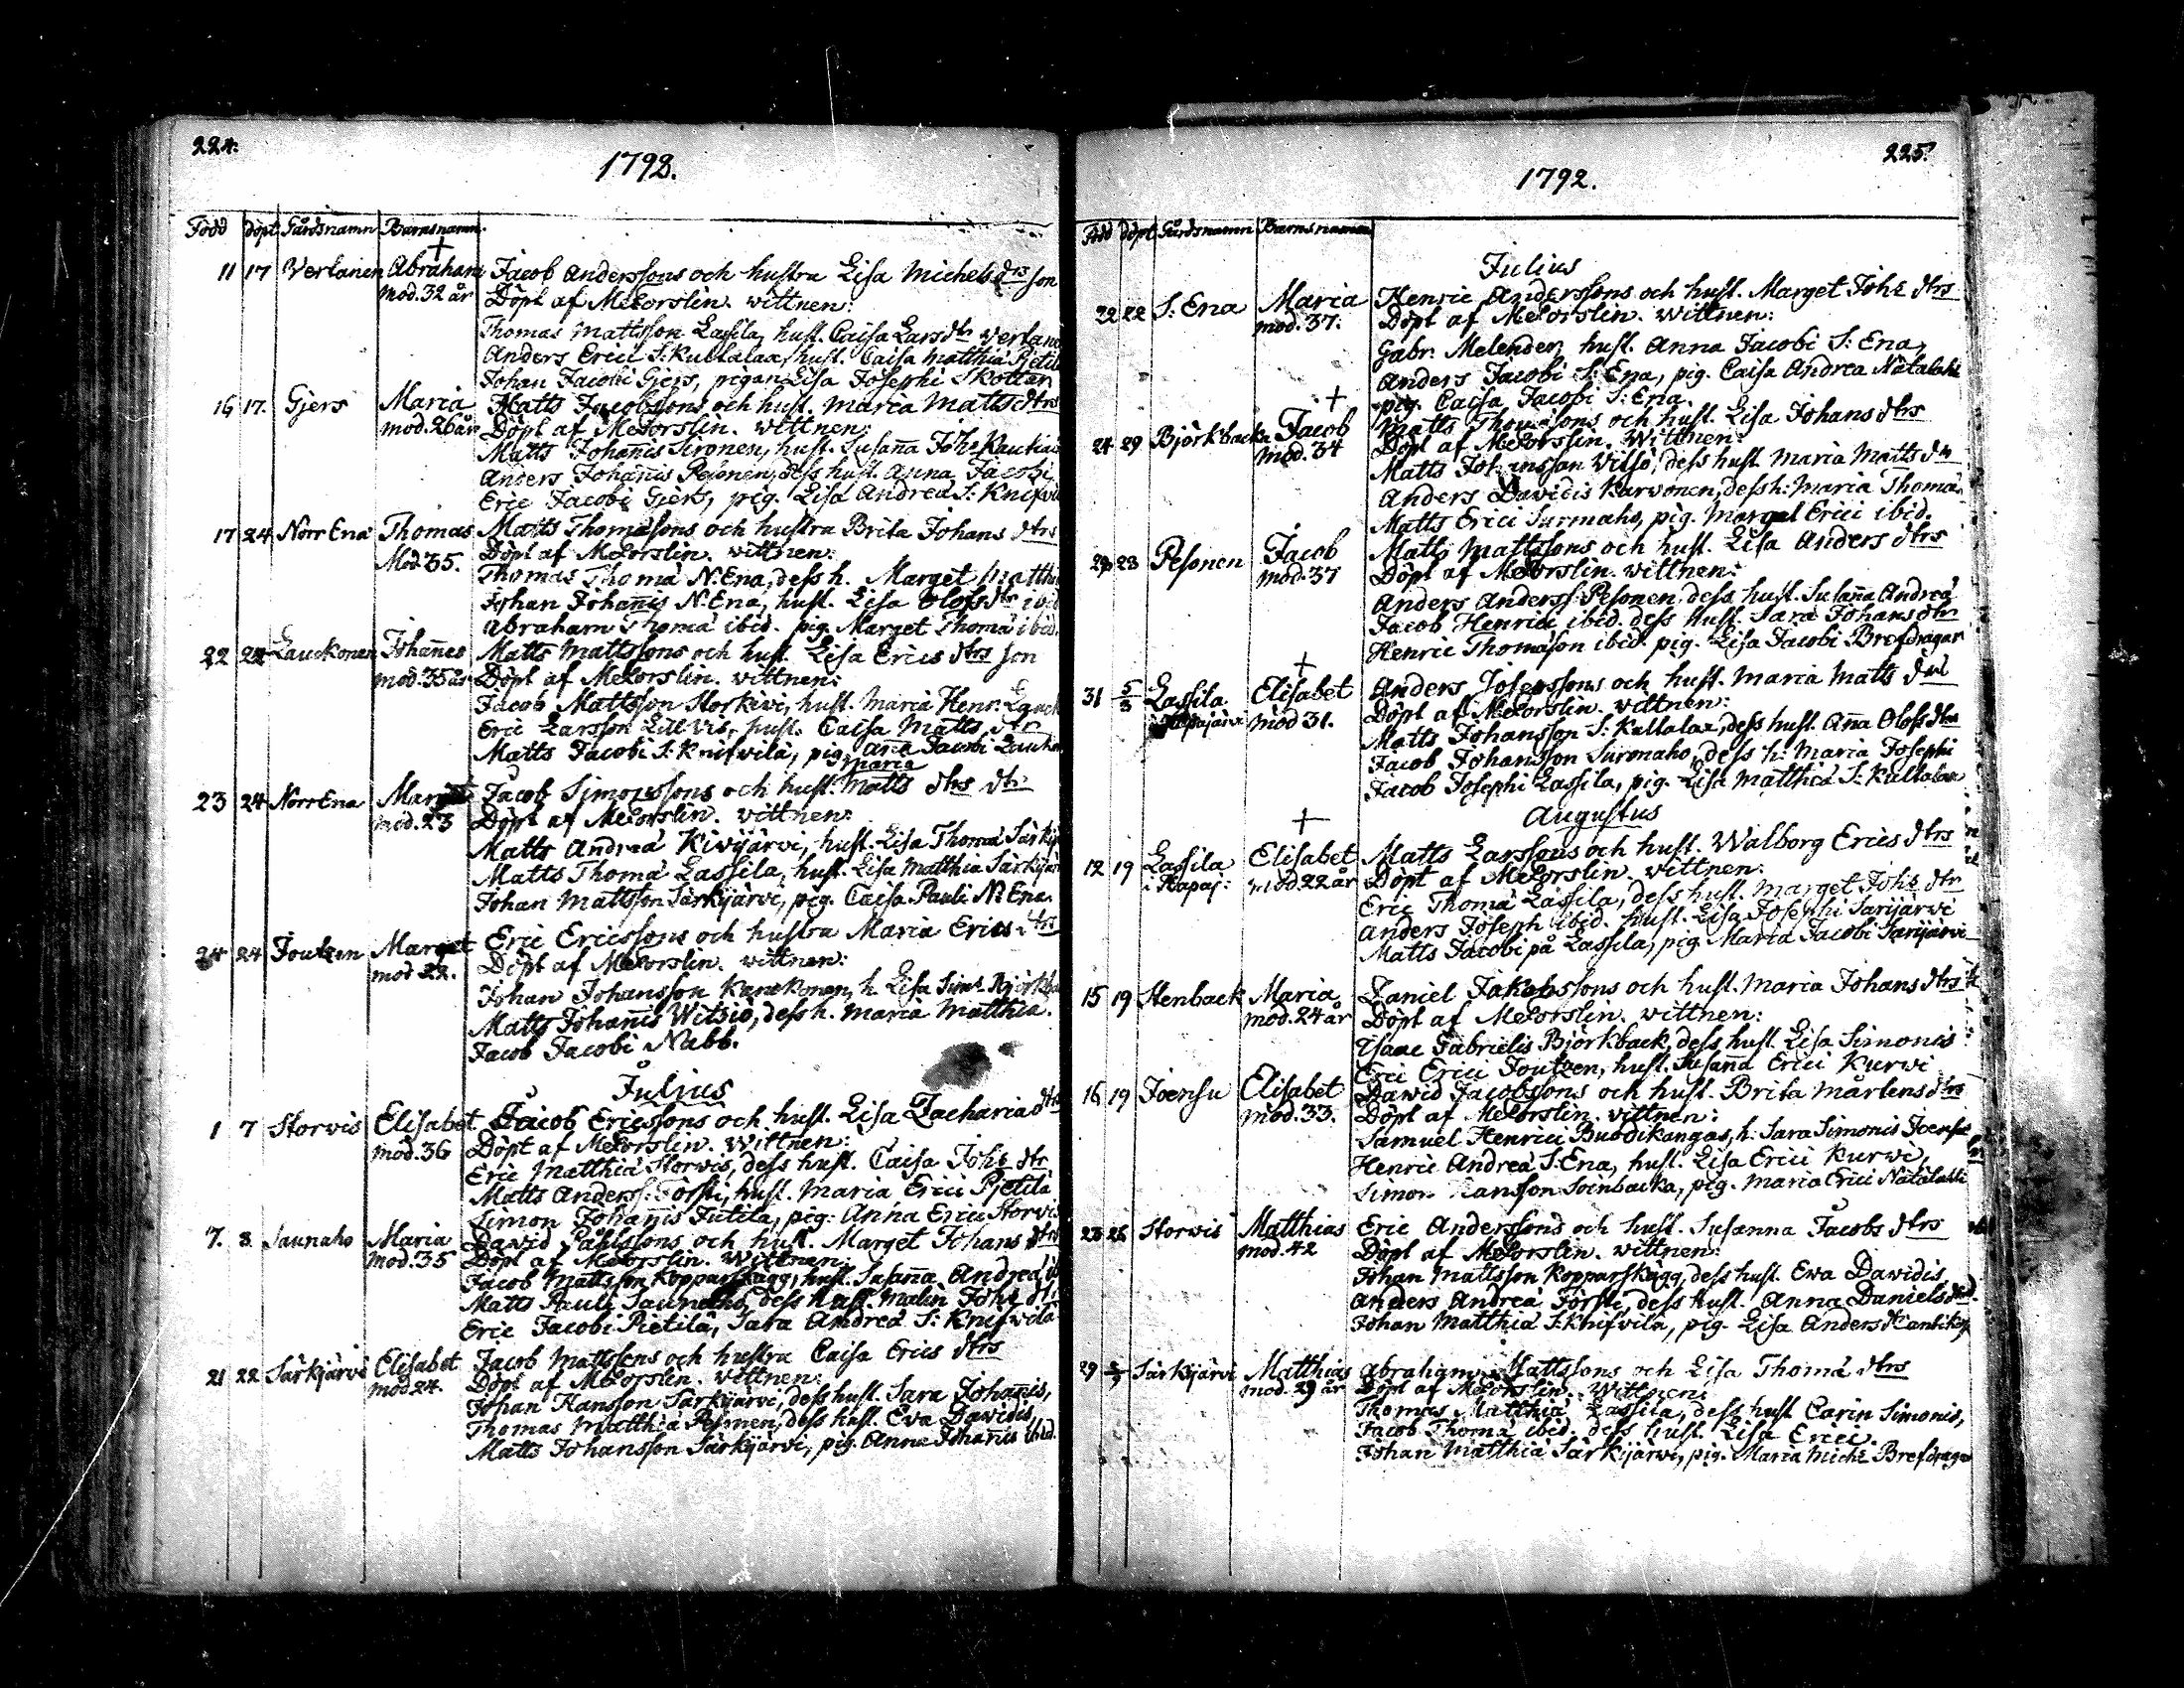 224.
1792.
Född döpt Gårdsnamn Barnsnamn.
11 17 Vertanen Abraham Jacob Anderssons och hustru Lisa Michels dtrs son
mod. 32 år Döpt af MeLorslin. wittnen:
Thomas Mattsson Lassila, hust. Caisa Lars dtr
Anders Erici S: Kullalaa, hust. Caisa Matthiæ
Johan Jacobi Gjers, pigan Lisa Josephi Skottar
16 17. Gjers Maria Matts Jacobsons och hust. Maria Matts dtrs
mod. 26 år Döpt af MeLorslin. wittnen:
Matts Johannis Sironen, hust. Susanna Johs
Anders Johannis Pesonen, dess hust. Anna Jacobi,
Eric Jacobi Gjers, pig. Lisa Andreæ S: Knifvila
17 24 Norr Ena Thomas Matts Thomæsons och hustru Brita Johans dtrs
Mod. 35. Döpt af MeLorslin. wittnen:
Thomas Thomæ N. Ena, dess h. Marget
Johan Johannis N. Ena, hust. Lisa Olofs dtr ibid
Abraham Thomæ ibid. pig. Marget Thomæ ibid.
22 24 Lauckonen Johannes Matts Mattssons och hust. Lisa Erics dtrs son
mod. 35 år Döpt af MeLorslin. wittnen:
Jacob Mattsson Storkivi, hust. Maria Henr.
Eric Larsson Lillvis, hust. Caisa Matts dtr
Matts Jacobi S: Knifwilä, pig. Anna Jacobi
Maria
23 24 Norr Ena Jacob Simonssons och hust. Matts dtrs dtr
mod. 23 Döpt af MeLorslin. wittnen:
Matts Andreæ Kiwijärvi, hust. Lisa Thomæ
Matts Thomæ Lassila, hust. Lisa Matthiæ
Johan Mattsson Särkijärvi, pig. Caisa Pauli N. Ena.
24 24 Joutzen Marget Eric Ericssons och hustru Maria Erics dtrs
mod 22. Döpt af MeLorslin. wittnen:
Johan Johansson h. Lisa
Matts Johannis Witsio, dess h. Maria Matthiæ.
Jacob Jacobi Nabb.
Julius
1 7 Storvis Elisabet Jacob Ericssons och hust. Lisa Zachariæ dtrs
mod. 36 Döpt af MeLorslin. wittnen:
Eric Matthiæ Storwis, dess hust. Caisa Johs dtr
Matts Anderss. Försti, hust. Maria Erici Pjetilä
Simon Johannis Jutila, pig. Anna Erici Storvis
7. 8 Saunaho Maria David Påhlssons och hust. Marget Johans dtrs
mod. 35 Döpt af MeLorslin. wittnen:
Jacob Mattsson Kopparskägg, hust. Susanna Andreæ
Matts Pauli Saunaho, dess hust. Malin Johs dtr
Eric Jacobi Pietilä, Sara Andreæ S: Knifvilä
21 22 Särkijärvi Elisabet Jacob Mattssons och hustru Caisa Erics dtrs
mod. 24. Döpt af MeLorslin. wittnen:
Johan Hansson Särkijärvi, dess hust. Sara Johannis,
Thomas Matthiæ Pesonen, dess hust. Eva Davidis,
Matts Johansson Särkijärvi, pig. Anna Johannis ibid.
225.
1792.
Född döpt Gårdsnamn Barnsnamn
Julius
22 22 S: Ena Maria Henric Anderssons och hust. Marget Johs dtrs
mod. 37. Döpt af MeLorslin. wittnen:
Gabr. Melender, hust. Anna Jacobi S: Ena,
Anders Jacobi S: Ena, pig. Caisa Andreæ Nätälahti
pig. Caisa Jacobi S: Ena.
24 29 Björkbacka Jacob Matts Thomæsons och hust. Lisa Johans dtrs
mod. 34 Döpt af MeLorslin. wittnen:
Matts Johansson Vitsö, dess hust. Maria Matts dtr
Anders Davidis Karvonen, dess h: Maria Thomæ
Matts Erici Surmaho, pig. Marget Erici ibid.
28 Pesonen Jacob Matts Mattssons och hust. Lisa Anders dtrs
mod. 37 Döpt af MeLorslin. wittnen:
Anders Anderss. Pesonen, dess hust. Susanna Andreæ
Jacob Henrici ibid. dess hust. Sara Johans dtr
Henric Thomæson ibid. pig. Lisa Jacobi Brefdragar
31 5/3 Lassila Elisabet Anders Josepssons och hust. Maria Matts dtrs
mod 31. Döpt af MeLorslin. wittnen:
Matts Johansson S: Kullalaa, dess hust. Anna Olofs dtr
Jacob Johansson Surmaho, dess h: Maria Josephi
Jacob Josephi Lassila, pig. Lisa Matthiæ S: Kullalaa
Augustus
12 19 Lassila Elisabet Matts Larssons och hust. Walborg Erics dtrs
i Kapaj: mod 22 år Döpt af MeLorslin. wittnen:
Eric Thomæ Lassila, dess hust. Marget Johs dtr
Anders Joseph ibid. hust. Lisa Josephi Sarijärvi
Matts Jacobi på Lassila, pig. Maria Jacobi Sarijärvi
15 19 Stenback Maria Daniel Jakobssons och hust. Maria Johans dtrs
mod. 24 år Döpt af MeLorslin. wittnen:
Isaac Gabrielis Björkback, dess hust. Lisa Simonis
Eric Erici Joutzen, hust. Susanna Erici Kurvi
16 19 Joensu Elisabet David Jacobssons och hust. Brita Mårtens dtrs
mod. 33. Döpt af MeLorslin. wittnen:
Samuel Henrici Buodikangas, h: Sara Simonis Joensu
Henric Andreæ S: Ena, hust. Lisa Erici Kurvi,
Simon Hansson Soinbacka, pig. Maria Erici Nätälahti
23 26 Storvis Matthias Eric Anderssons och hust. Susanna Jacobs dtrs
mod. 42 Döpt af MeLorslin. wittnen:
Johan Mattsson Kopparskägg, dess hust. Ewa Davidis
Anders Andreæ Försti, dess hust. Anna Daniels dtr.
Johan Matthiæ S: Knifvila, pig. Lisa Anders dtr
29 Särkijärvi Matthias Abraham Mattssons och Lisa Thomæ dtrs
mod. 29 år Döpt af MeLorslin. wittnen:
Thomas Matthiæ Lassila, dess hust Carin Simonis,
Jacob Thomæ ibid. dess hust. Lisa Erici.
Johan Matthiæ Särkijärvi, pig. Maria Brefdragar